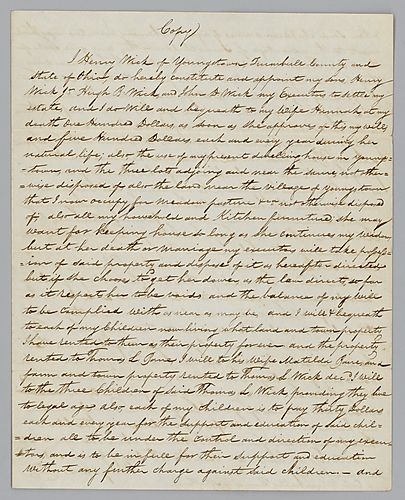 Copy
I Henry Wick of Youngstown Trumbull County and
State of Ohio do hereby constitute and appoint my sons Henry
Wick Jr Hugh B Wick and John D Wick my Executors to settle my
estate, and I do Will and bequeath to my Wife Hannah, at my
death One Hundred Dollars, as soon as she approves of this my will,
and five Hundred Dollars, each and every year during her
natural life; also the use of my present dwelling house in Young-
-town, and the three lots adjoining and near the same, not other-
-wise disposed of also the land near the Village of Youngstown
that I now occupy for meadow pasture &c not otherwise disposed
of also all my household and Kitchen furniture she may
want for Keeping house so long as she continues my widow
but at her death or marriage my executors will take possess-
ion of said property and dispose of it as hereafter directed
but if she chooses to get her dower as the law directs so far
as it respects her to be void and the balance of my will
to be complied with as near as may be and I will & bequeath
to each of my Children now living what land and town property
I have rented to them as their property forever and the property
rented to Thomas L I will to his Wife Matilda and
farm and town property rented to Thomas L Wick decd I will
to the three Children of said Thomas L Wick providing they live
to legal age also, each of my children is to pay thirty Dollars
each and every year for the support and education of said chil-
-dren all to be under the control and direction of my execu-
tors, and is to be in full for their support and education
without any further charge against said children - and